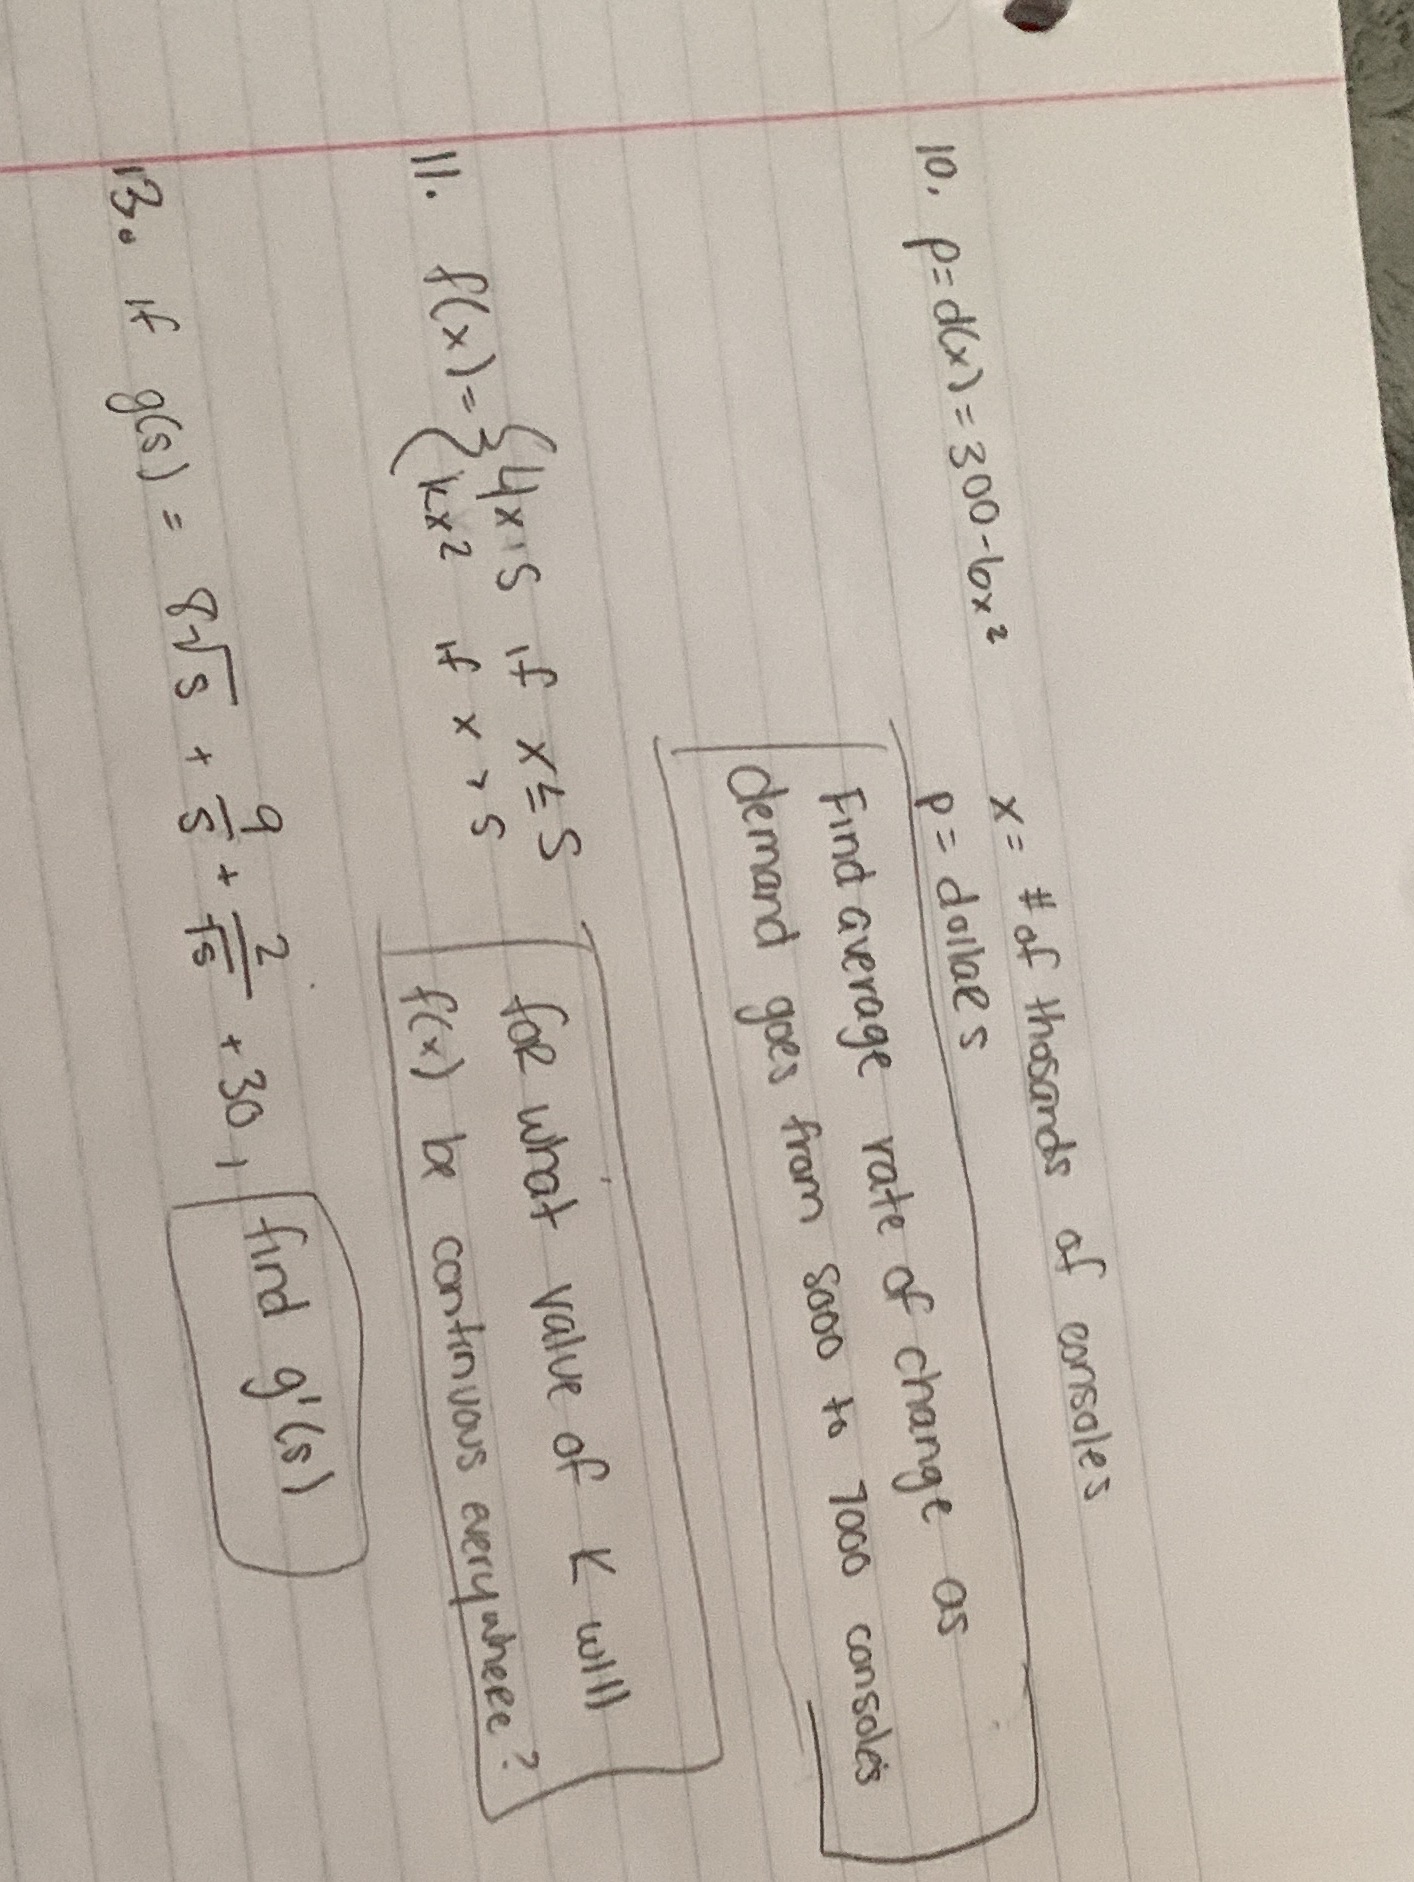 10. p=d(x)=300-6x² x= # of thosands of consoles
p= dollars
Find average rate of change as
demand goes from 5000 to 7000 consoles
11. f(x)= { 4x-5 if x≤5
kx² if x>5
for what value of k will
f(x) be continuous everywhere?
13. if g(s) = 8√s + 9/s + 2/√s +30, find g'(s)